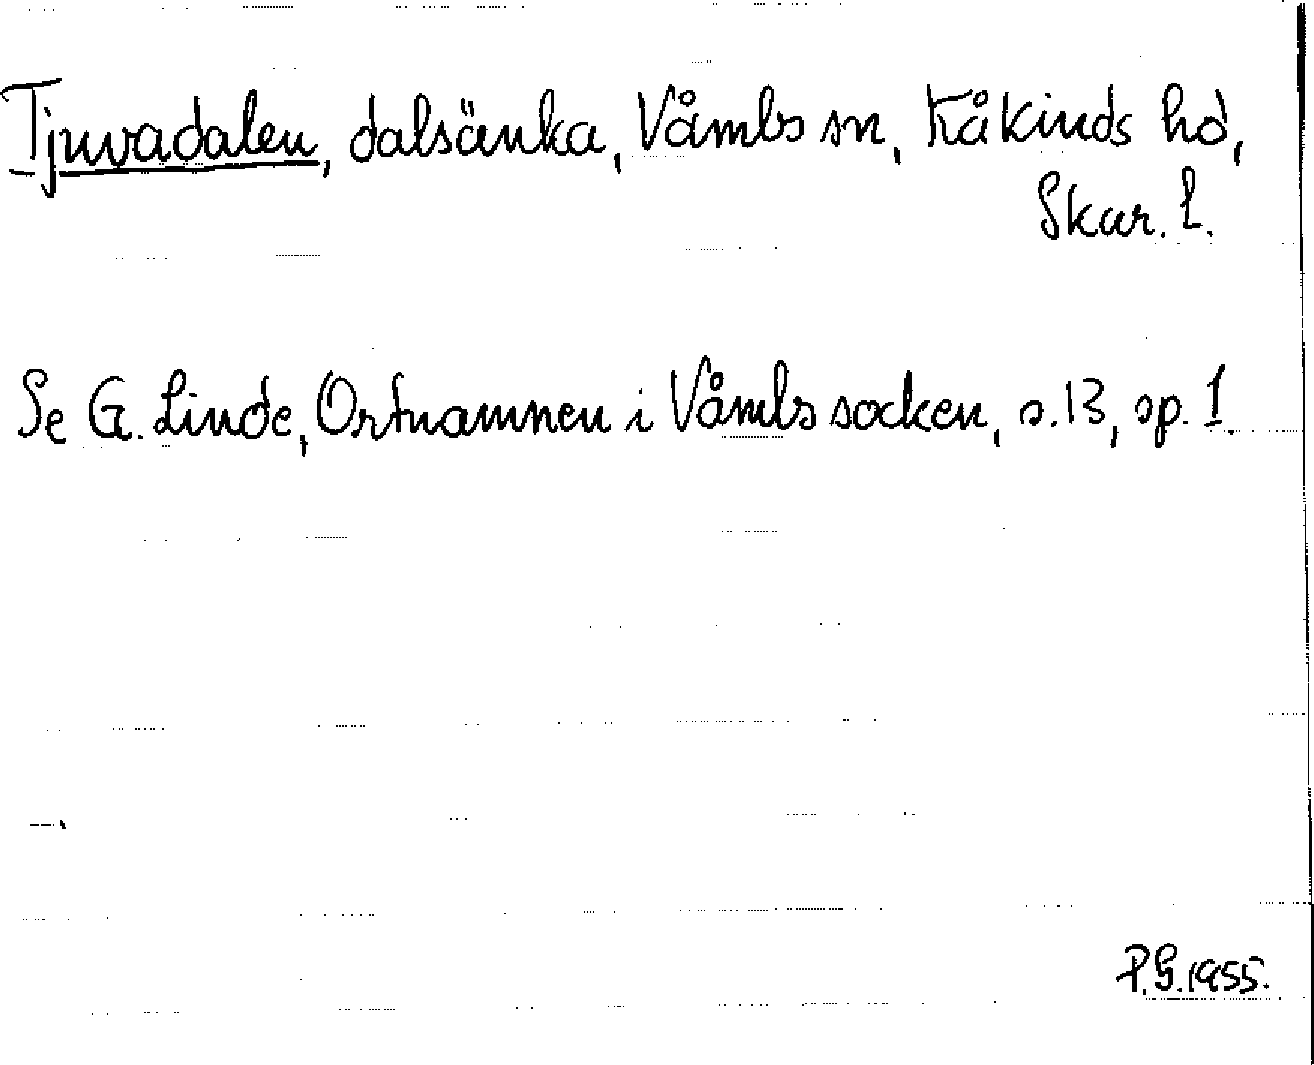 Tjuvadalen, dalsänka, Våmbs sn, Kåkinds hd,
Skar. l.
Se G. Linde, Ortnamnen i Våmbs socken, s. 13, sp. 1.
P.G. 1955.